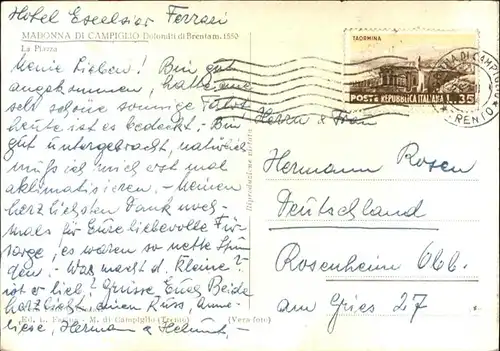 Hotel Excelsior Ferrari
MADONNA DI CAMPIGLIO Dolomiti di Brenta m. 1550
La Piazza
Meine Lieben! Bin gut
angekommen, hatte eine
sehr schöne sonnige Fahrt,
heute ist es bedeckt. - Bin
gut untergebracht, natürlich
muß ich mich erst mal
aklimatisieren. - Meinen
herzlichsten Dank noch-
mals für Eure liebevolle Für-
sorge, es waren so nette Stun-
den. - Was macht d. Kleine?
ist er lieb? Grüsse Euch Beide
herzlichst, einen Kuss, Anne-
liese, Hermann u Helmut, -
Ed. L. - M. di Campiglio (Trento) (Vera foto)
Riproduzione vietata
TAORMINA
POSTE REPUBBLICA ITALIANA L. 35
DI CAMPIGLIO
TRENTO
Herrn u Frau
Hermann Rosen
Deutschland
Rosenheim Obb.
am Gries 27